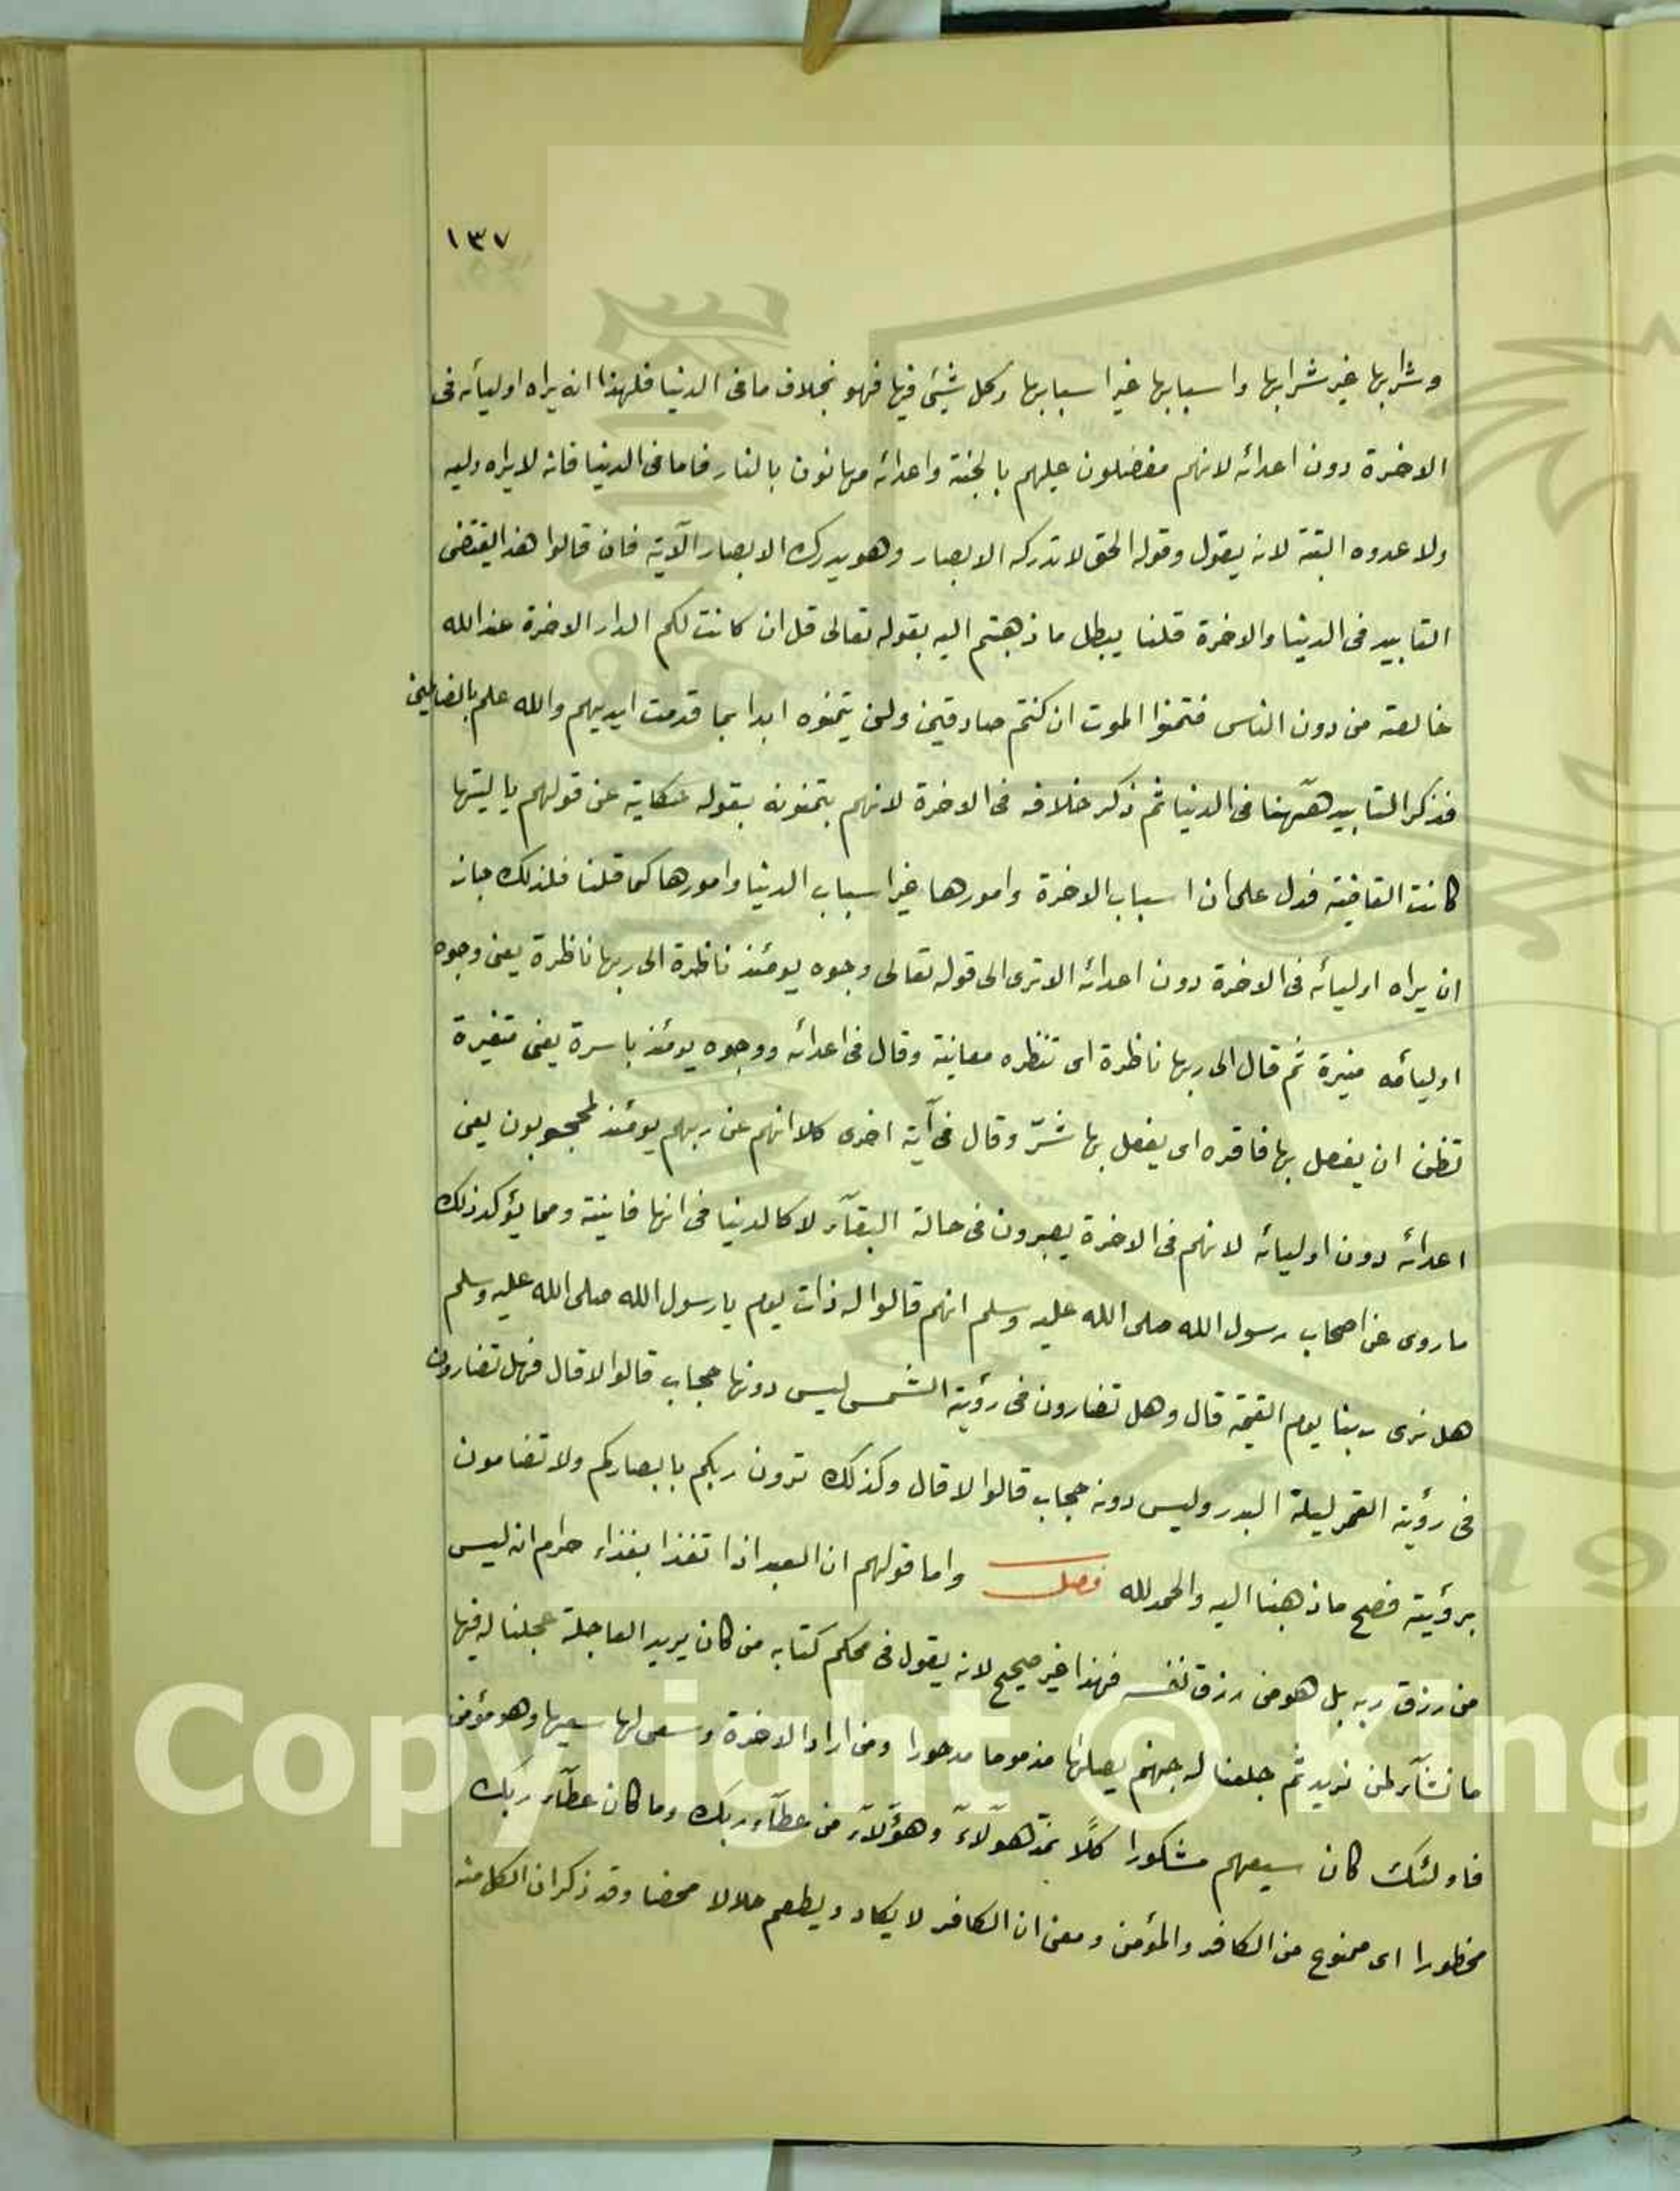 ١٣٧
وشرابها غير شرابها واسبابها غير اسبابها وكل شيئ فيها فهو بخلاف ما فى الدنيا فلهذا انه يراه اوليائه فى
الاخرة دون اعدائه لانهم مفضلون عليهم بالجنة واعدائه مهانون بالنار فاما فى الدنيا فانه لا يراه وليه
ولا عدوه البتة لانه يقول وقوله الحق لا تدركه الابصار وهو يدرك الابصار الآية فان قالوا هذا يقتضى
التابيد فى الدنيا والاخرة قلنا يبطل ما ذهبتم اليه بقوله تعالى قل ان كانت لكم الدار الاخرة عند الله
خالصة من دون الناس فتمنوا الموت ان كنتم صادقين ولن يتمنوه ابدا بما قدمت ايديهم والله علم بالضالمين
فذكر التابيد ههنا فى الدنيا ثم ذكر خلافه فى الاخرة لانهم يتمنونه بقوله حكاية عن قولهم يا ليتها
كانت القاضية فدل على ان اسباب الاخرة وامورها غير اسباب الدنيا وامورها كما قلنا فلذلك جاز
ان يراه اوليائه فى الاخرة دون اعدائه الا ترى الى قوله تعالى وجوه يومئذ ناظرة الى ربها ناظرة يعنى وجوه
اوليائه منيرة ثم قال الى ربها ناظرة اى تنظره معاينة وقال فى اعدائه ووجوه يومئذ باسرة يعنى متغيرة
تظن ان يفعل بها فاقره اى يفعل بها شرّ وقال فى آية اخرى كلا انهم عن ربهم يومئذ لمحجوبون يعنى
اعدائه دون اوليائه لانهم فى الاخرة يصيرون فى حالة البقآء لا كالدنيا فى انها فانية ومما يؤكد ذلك
ما روى عن اصحاب رسول الله صلى الله عليه وسلم انهم قالوا له ذات يوم يا رسول الله صلى الله عليه وسلم
هل نرى ربنا يوم القيمة قال وهل تضارون فى رؤية الشمس ليس دونها حجاب قالوا لا قال فهل تضارون
فى رؤية القمر ليلة البدر وليس دونه حجاب قالوا لا قال وكذلك ترون ربكم بابصاركم ولا تضامون
برؤيته فصح ما ذهبنا اليه والحمد لله فصل واما قولهم ان العبد اذا تغذا بغذاء حرام انه ليس
من رزق ربه بل هو من رزق نفسه فهذا غير صحيح لانه يقول فى محكم كتابه من كان يريد العاجلة عجلنا له فيها
ما نشآء لمن نريد ثم جلعنا له جهنم يصلها مذموما مدحورا ومن اراد الاخرة وسعى لها سعيها وهو مؤمن
فاولئك كان سيعهم مشكورا كلًا نمدّ هولآء وهؤلآء من عطآء ربك وما كان عطآء ربك
محظورا اى ممنوع من الكافر والمؤمن ومعنى ان الكافر لا يكاد ويطعم حلالا محضا وقد ذكر ان الكل منه